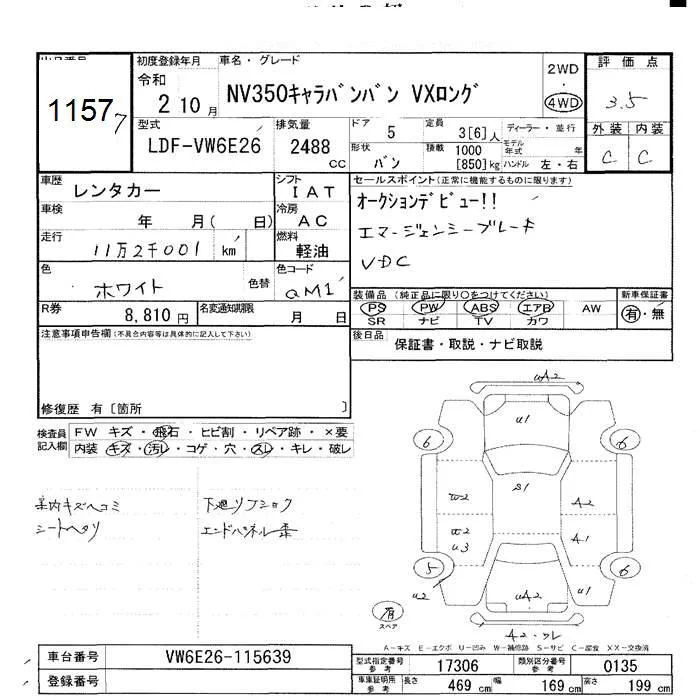 初度登録年月
車名・グレード
評価点
1157
令和
2 10月
NV350キャラバンバン VXロング
2WD
・
4WD
3.5
型式
LDF-VW6E26
排気量
2488
cc
ドア
5
定員
3[6]人
ディーラー・並行
モデル年式 年
ハンドル 左・右
形状
バン
積載
1000
[850]kg
外装 内装
C C
車歴
レンタカー
シフト
IAT
セールスポイント(正常に機能するものに限ります)
車検
年 月( 日)
冷房
AC
オークションデビュー!!
エマージェンシーブレーキ
VDC
走行
11万2千001 km
燃料
軽油
色
ホワイト
色替
色コード
QM1
装備品 (純正品に限り○をつけてください)
新車保証書
PS PW ABS エアB AW
SR ナビ TV カワ
有・無
R券
8,810円
名変通知期限
月 日
注意事項申告欄(不具合内容等は具体的に記入して下さい)
後日品
保証書・取説・ナビ取説
修復歴 有〔箇所 〕
検査員記入欄
FW キズ・飛石・ヒビ割・リペア跡・×要
内装 キズ・汚レ・コゲ・穴・スレ・キレ・破レ
下廻リフショク
シートヘタリ
エンドパネル歪
A2
U1
6 6
S1
A2
A1
U3
5 6
U2
UA2
U1
有
スペア
A2・ワレ
A-キズ E-エクボ U-凹み W-補修跡 S-サビ C-腐食 XX-交換済
車台番号
VW6E26-115639
登録番号
型式指定番号 参考
17306
類別区分番号 参考
0135
車庫証明用 参考
長さ 469 cm
幅 169 cm
高さ 199 cm